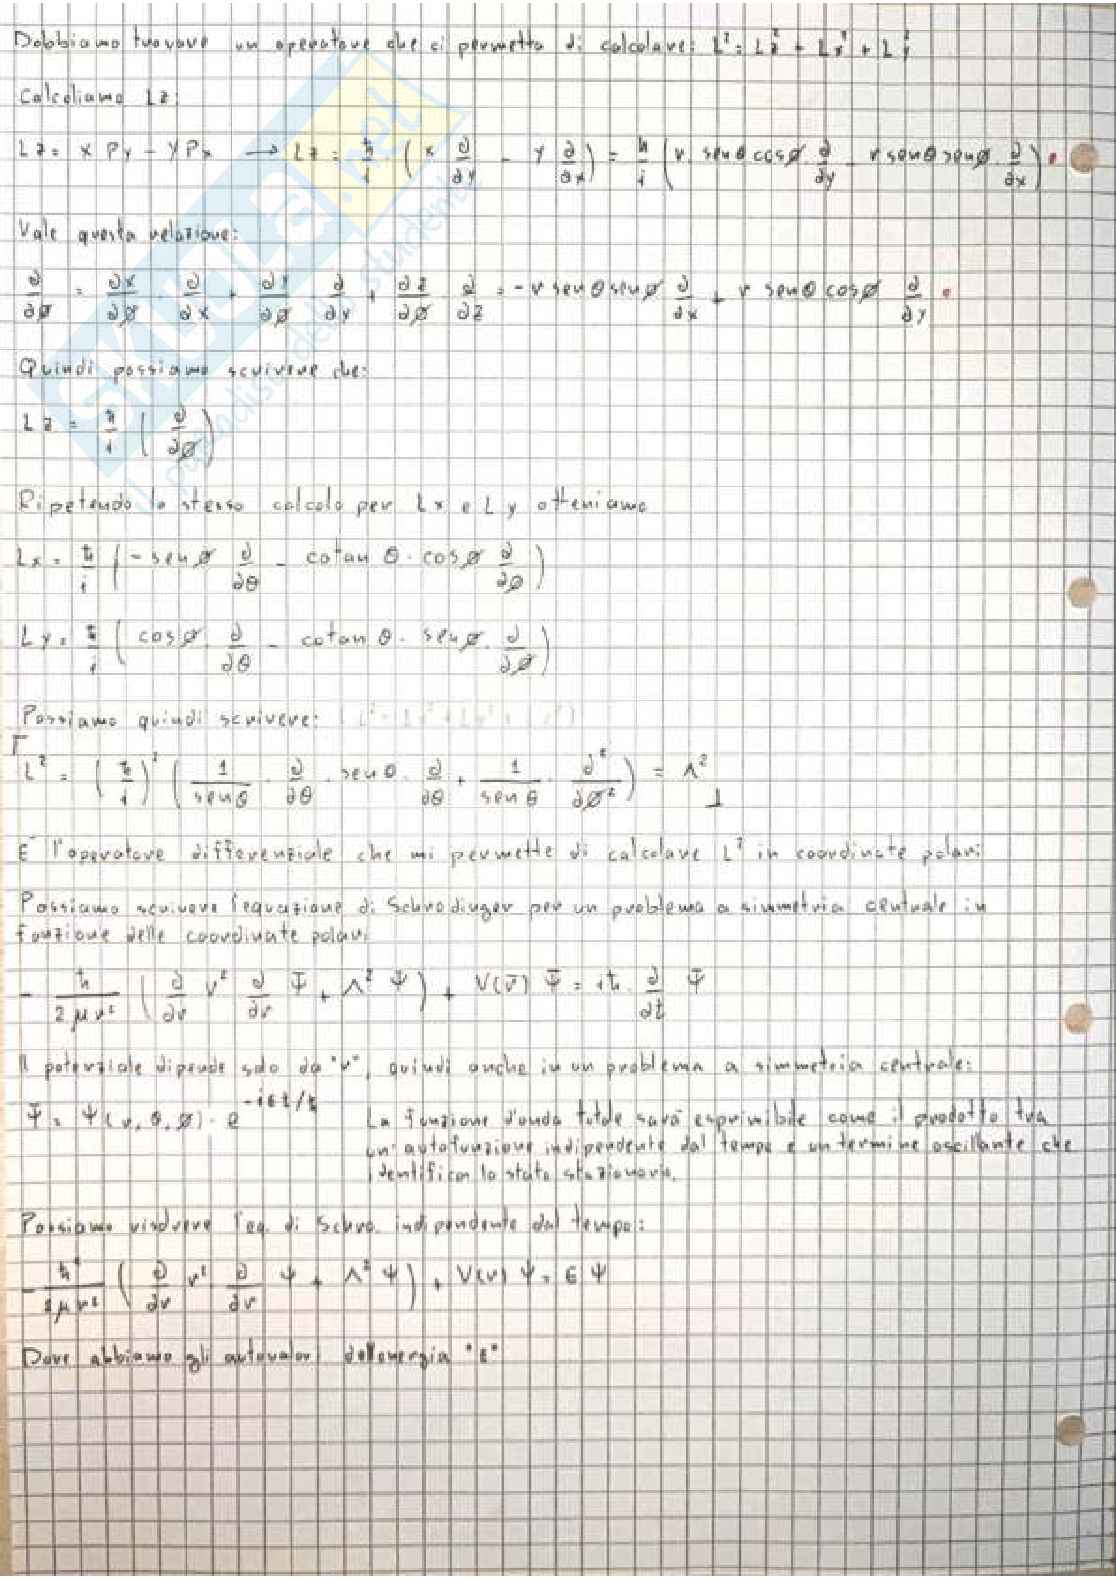 Dobbiamo trovare un operatore che ci permetta di calcolare: L² = Lz² + Lx² + Ly²
Calcoliamo Lz:
Lz = x Py - y Px → Lz = ħ/i ( x ∂/∂y - y ∂/∂x ) = ħ/i ( r senθ cosø ∂/∂y - r senθ senø ∂/∂x )
Vale questa relazione:
∂/∂ø = ∂x/∂ø · ∂/∂x + ∂y/∂ø ∂/∂y + ∂z/∂ø ∂/∂z = - r senθ senø ∂/∂x + r senθ cosø ∂/∂y
Quindi possiamo scrivere che:
Lz = ħ/i ( ∂/∂ø )
Ripetendo lo stesso calcolo per Lx e Ly otteniamo
Lx = ħ/i ( - senø ∂/∂θ - cotan θ · cosø ∂/∂ø )
Ly = ħ/i ( cosø ∂/∂θ - cotan θ · senø · ∂/∂ø )
Possiamo quindi scrivere:
L² = ( ħ/i )² ( 1/senθ · ∂/∂θ · senθ · ∂/∂θ + 1/senθ · ∂²/∂ø² ) = Λ²
E' l'operatore differenziale che mi permette di calcolare L² in coordinate polari
Possiamo scrivere l'equazione di Schrodinger per un problema a simmetria centrale in
funzione delle coordinate polari
- ħ/2μr² ( ∂/∂r r² ∂/∂r Ψ + Λ² Ψ ) + V(r̄) Ψ = iħ · ∂/∂t Ψ
Il potenziale dipende solo da "r", quindi anche in un problema a simmetria centrale:
Ψ = ψ(r, θ, ø) · e^(-iεt/ħ) La funzione d'onda totale sarà esprimibile come il prodotto tra
un'autofunzione indipendente dal tempo e un termine oscillante che
identifica lo stato stazionario.
Possiamo risolvere l'eq. di Schro. indipendente dal tempo:
- ħ²/2μr² ( ∂/∂r r² ∂/∂r ψ + Λ² ψ ) + V(r) ψ = ε ψ
Dove abbiamo gli autovalori dell'energia "ε"
SKUOLA.net